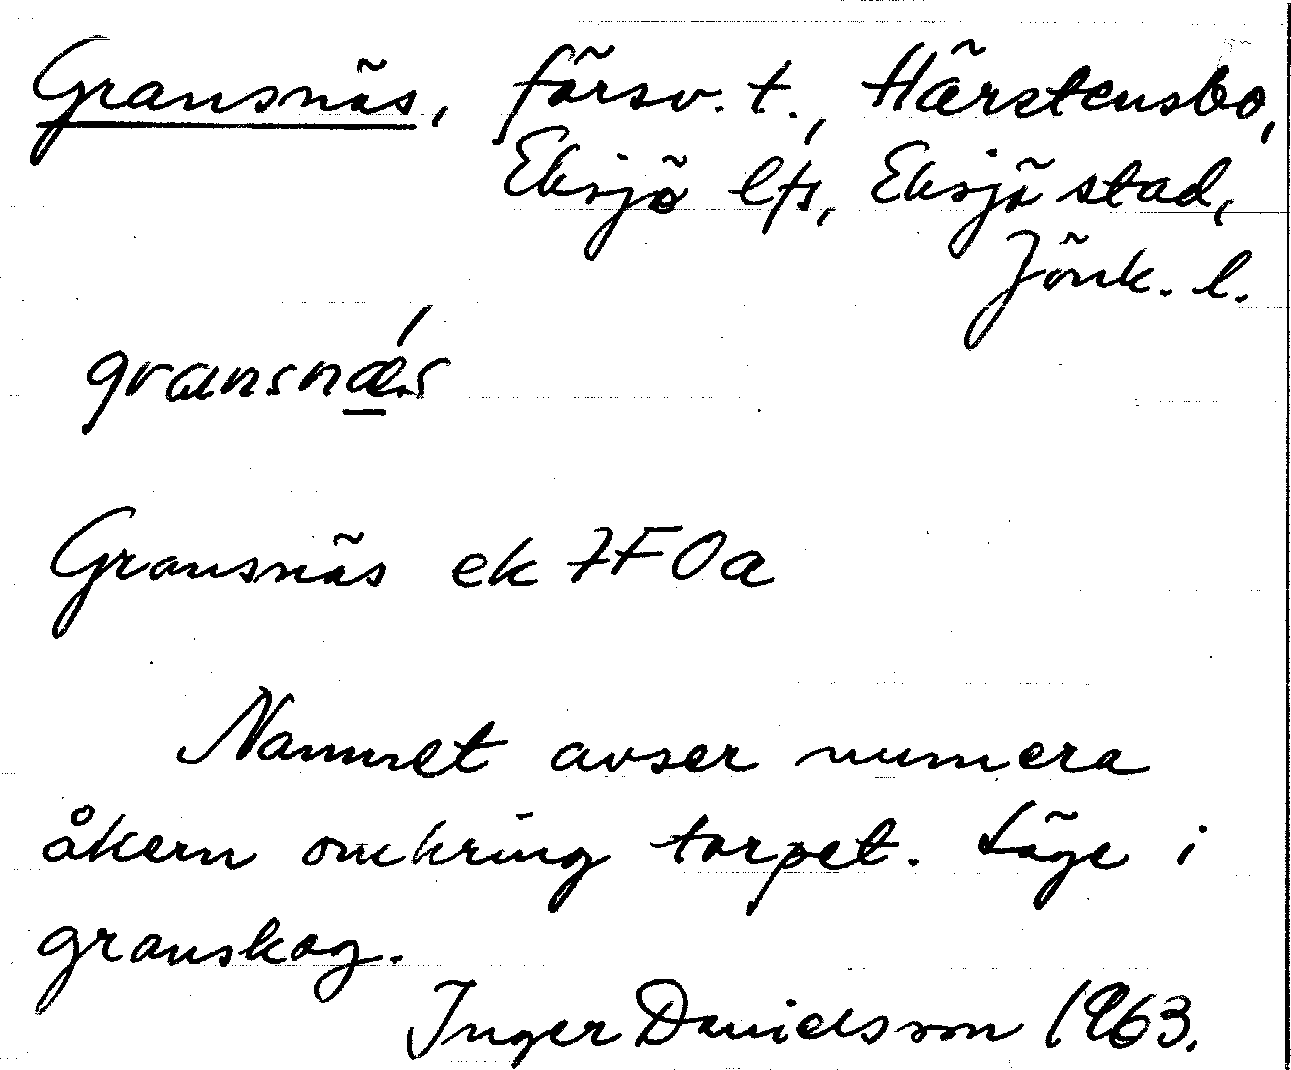 Gransnäs, försv. t., Härstensbo,
Eksjö lfs, Eksjö stad,
Jönk. l.
gransnǽs
Gransnäs ek 7F0a
Namnet avser numera
åkern omkring torpet. Läge i
granskog.
Inger Danielsson 1963.